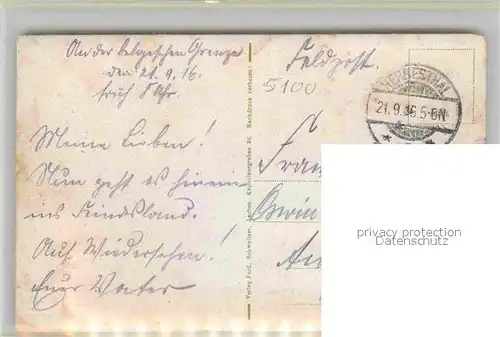 An der belgischen Grenze
den 21.9.16.
früh 5 Uhr.
Meine Lieben!
Nun geht es hinein
ins Feindesland.
Auf Wiedersehen!
Euer Vater
Verlag Ferd. Schweitzer, Aachen
Nachdruck verboten!
Feldpost.
5100
HERBESTHAL
21.9.16.5-6N
privacy protection
Datenschutz